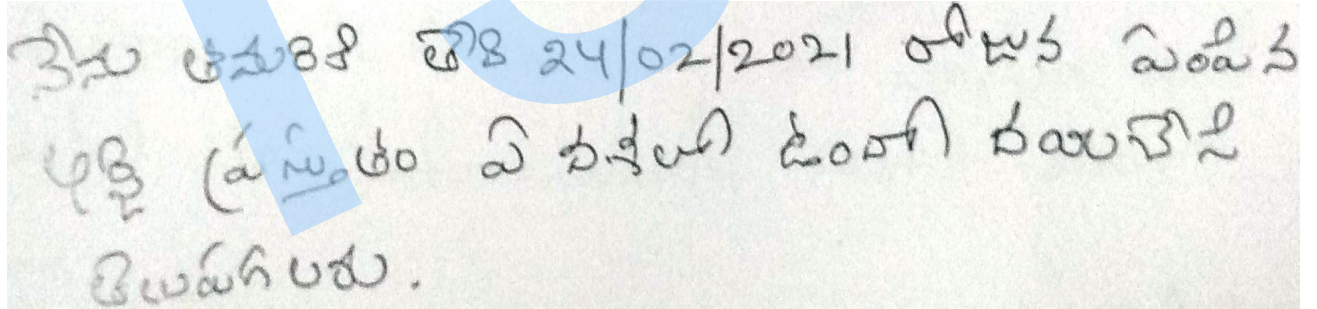 నేను తమరికి తేది 24/02/2021 రోజున పంపిన
అర్జి ప్రస్తుతం ఏ దశలో ఉందో దయచేసి
తెలుపగలరు.